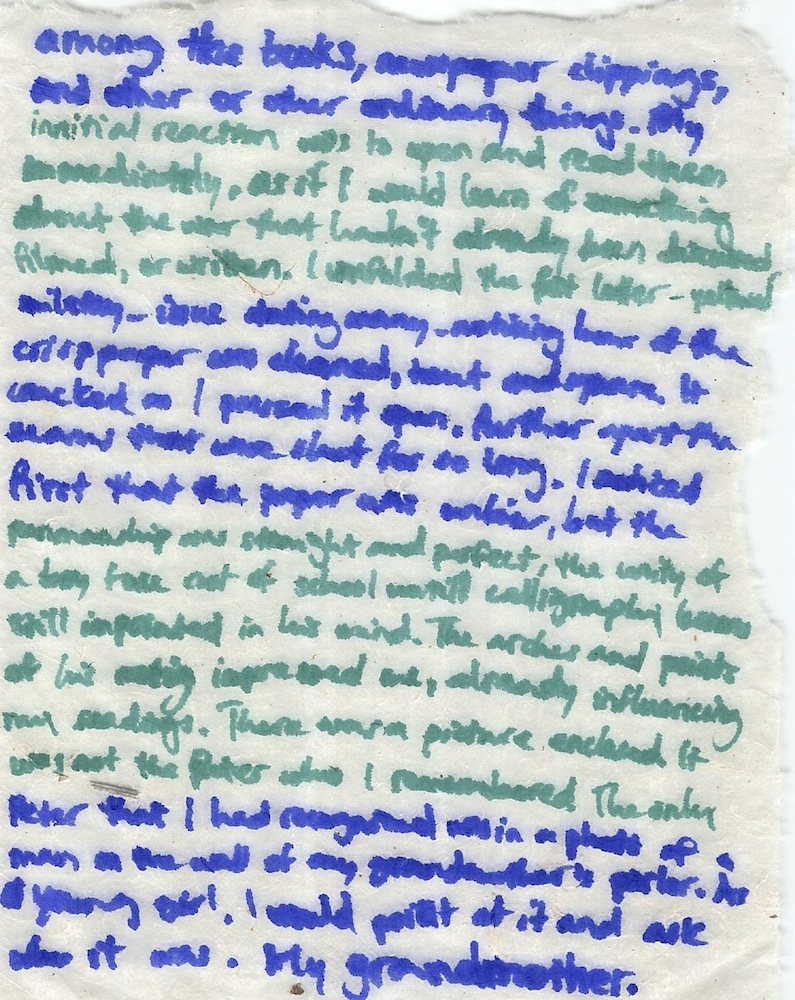 among the books, newspaper clippings,
and other or other ordinary things. My
innitial reaction was to open and read them
immediately, as if I would learn of something
about the war that hadn't already been discussed
filmed, or written. I unfolded the fat letter -
military - issue dating away - noticing how the
crisp paper was cleaned,
cracked as I it open. further apart the
that were shut for so long. I noticed
first that the paper was, but the
penmanship was straight and perfect, the unity of
a boy face out of school until calligraphy
still imprinted in his mind. The arches and points
of his impressed me, already influencing
my readings. There was a picture enclosed. It
was not the Peter who I remembered. The only
Peter that I had recognized was in a photo of a
man on the wall of my grandmother's parlor. As
a young girl, I would point at it and ask
who it was. My grandmother.